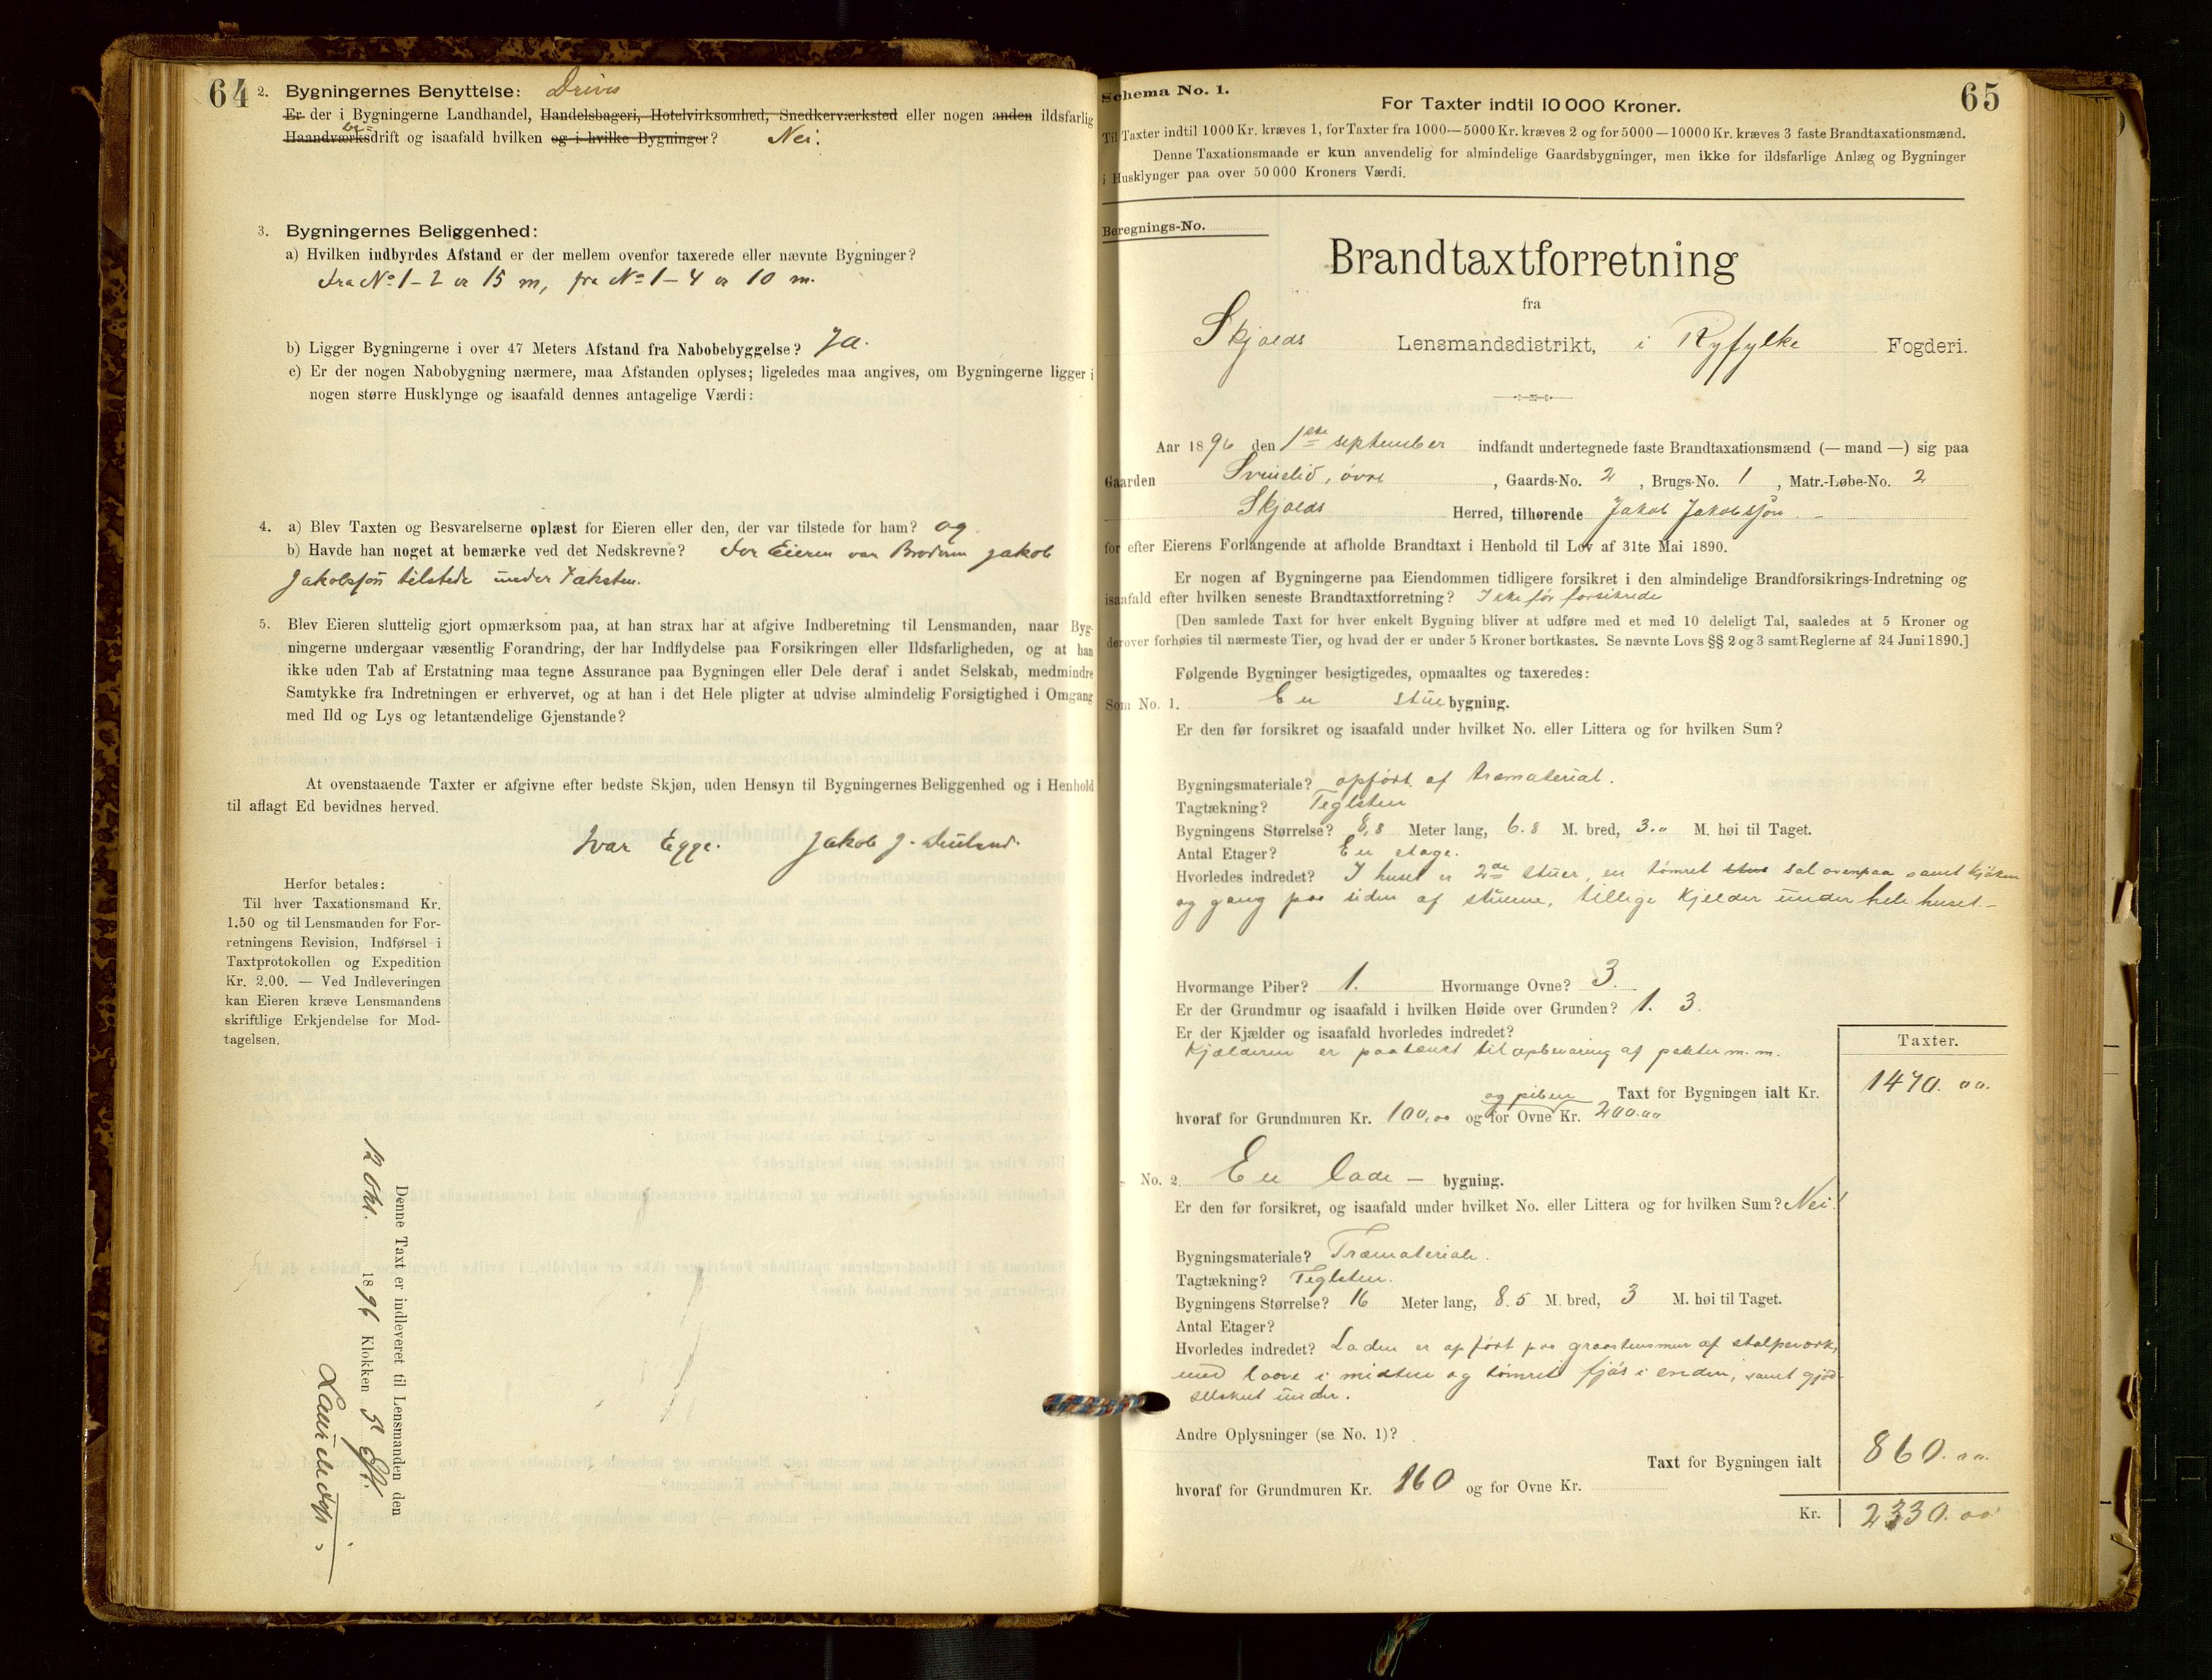 64
2. Bygningernes Benyttelse: Drives
Er der i Bygningerne Landhandel, Handelsbageri, Hotelvirksomhed, Snedkerværksted eller nogen anden ildsfarlig
Haandværksdrift og isaafald hvilken og i hvilke Bygninger? Nei.
3. Bygningernes Beliggenhed:
a) Hvilken indbyrdes Afstand er der mellem ovenfor taxerede eller nævnte Bygninger?
Fra No 1-2 er 15 m, fra No 1-4 er 10 m.
b) Ligger Bygningerne i over 47 Meters Afstand fra Nabobebyggelse? Ja.
c) Er der nogen Nabobygning nærmere, maa Afstanden oplyses; ligeledes maa angives, om Bygningerne ligger i
nogen større Husklynge og isaafald dennes antagelige Værdi:
4. a) Blev Taxten og Besvarelserne oplæst for Eieren eller den, der var tilstede for ham? og
b) Havde han noget at bemærke ved det Nedskrevne? For Eieren var Broderen Jakob
Jakobsjøn tilstede under Taksten.
5. Blev Eieren sluttelig gjort opmærksom paa, at han strax har at afgive Indberetning til Lensmanden, naar Byg-
ningerne undergaar væsentlig Forandring, der har Indflydelse paa Forsikringen eller Ildsfarligheden, og at han
ikke uden Tab af Erstatning maa tegne Assurance paa Bygningen eller Dele deraf i andet Selskab, medmindre
Samtykke fra Indretningen er erhvervet, og at han i det Hele pligter at udvise almindelig Forsigtighed i Omgang
med Ild og Lys og letantændelige Gjenstande?
At ovenstaaende Taxter er afgivne efter bedste Skjøn, uden Hensyn til Bygningernes Beliggenhed og i Henhold
til aflagt Ed bevidnes herved.
Ivar Egge. Jakob J.
Herfor betales:
Til hver Taxationsmand Kr.
1.50 og til Lensmanden for For-
retningens Revision, Indførsel i
Taxtprotokollen og Expedition
Kr. 2.00. — Ved Indleveringen
kan Eieren kræve Lensmandens
skriftlige Erkjendelse for Mod-
tagelsen.
Denne Taxt er indleveret til Lensmanden den
12 Okt. 1896 Klokken 5 Eft.
65
Schema No. 1.
For Taxter indtil 10 000 Kroner.
Til Taxter indtil 1000 Kr. kræves 1, for Taxter fra 1000—5000 Kr. kræves 2 og for 5000—10000 Kr. kræves 3 faste Brandtaxationsmænd.
Denne Taxationsmaade er kun anvendelig for almindelige Gaardsbygninger, men ikke for ildsfarlige Anlæg og Bygninger
i Husklynger paa over 50 000 Kroners Værdi.
Beregnings-No.
Brandtaxtforretning
fra
Skjolds Lensmandsdistrikt, i Ryfylke Fogderi.
Aar 1896 den 1ste september indfandt undertegnede faste Brandtaxationsmænd (— mand —) sig paa
Gaarden Svinelid, øvre, Gaards-No. 2, Brugs-No. 1, Matr.-Løbe-No. 2
Skjolds Herred, tilhørende Jakob Jakobsjøn
for efter Eierens Forlangende at afholde Brandtaxt i Henhold til Lov af 31te Mai 1890.
Er nogen af Bygningerne paa Eiendommen tidligere forsikret i den almindelige Brandforsikrings-Indretning og
isaafald efter hvilken seneste Brandtaxtforretning? Ikke før forsikrede
[Den samlede Taxt for hver enkelt Bygning bliver at udføre med et med 10 deleligt Tal, saaledes at 5 Kroner og
derover forhøies til nærmeste Tier, og hvad der er under 5 Kroner bortkastes. Se nævnte Lovs §§ 2 og 3 samt Reglerne af 24 Juni 1890.]
Følgende Bygninger besigtigedes, opmaaltes og taxeredes:
Som No. 1. En stue bygning.
Er den før forsikret og isaafald under hvilket No. eller Littera og for hvilken Sum?
Bygningsmateriale? opført af træmaterial.
Tagtækning? Teglsten
Bygningens Størrelse? 8,8 Meter lang, 6.8 M. bred, 3.,, M. høi til Taget.
Antal Etager? En etage.
Hvorledes indredet? I huset er 2de stuer, en tømret stue sal ovenpaa samt kjøken
og gang paa siden af stuerne, tillige kjelder under hele huset.-
Hvormange Piber? 1. Hvormange Ovne? 3.
Er der Grundmur og isaafald i hvilken Høide over Grunden? 1. 3.
Er der Kjælder og isaafald hvorledes indredet?
Kjælderen er paatænkt til opbevaring af poteter m. m.
Taxter.
og piben Taxt for Bygningen ialt Kr. 1470.00.
hvoraf for Grundmuren Kr. 100,00 og for Ovne Kr. 200.00
No. 2. En lade — bygning.
Er den før forsikret, og isaafald under hvilket No. eller Littera og for hvilken Sum? Nei!
Bygningsmateriale? Træmateriale.
Tagtækning? Teglsten.
Bygningens Størrelse? 16 Meter lang, 8.5 M. bred, 3 M. høi til Taget.
Antal Etager?
Hvorledes indredet? Laden er opført paa graastensmur af stolpeværk,
med loove i midten og tømret fjøs i enden, samt gjød-
selskut under.
Andre Oplysninger (se No. 1)?
Taxt for Bygningen ialt 860.00.
hvoraf for Grundmuren Kr. 160 og for Ovne Kr.
Kr. 2330.00